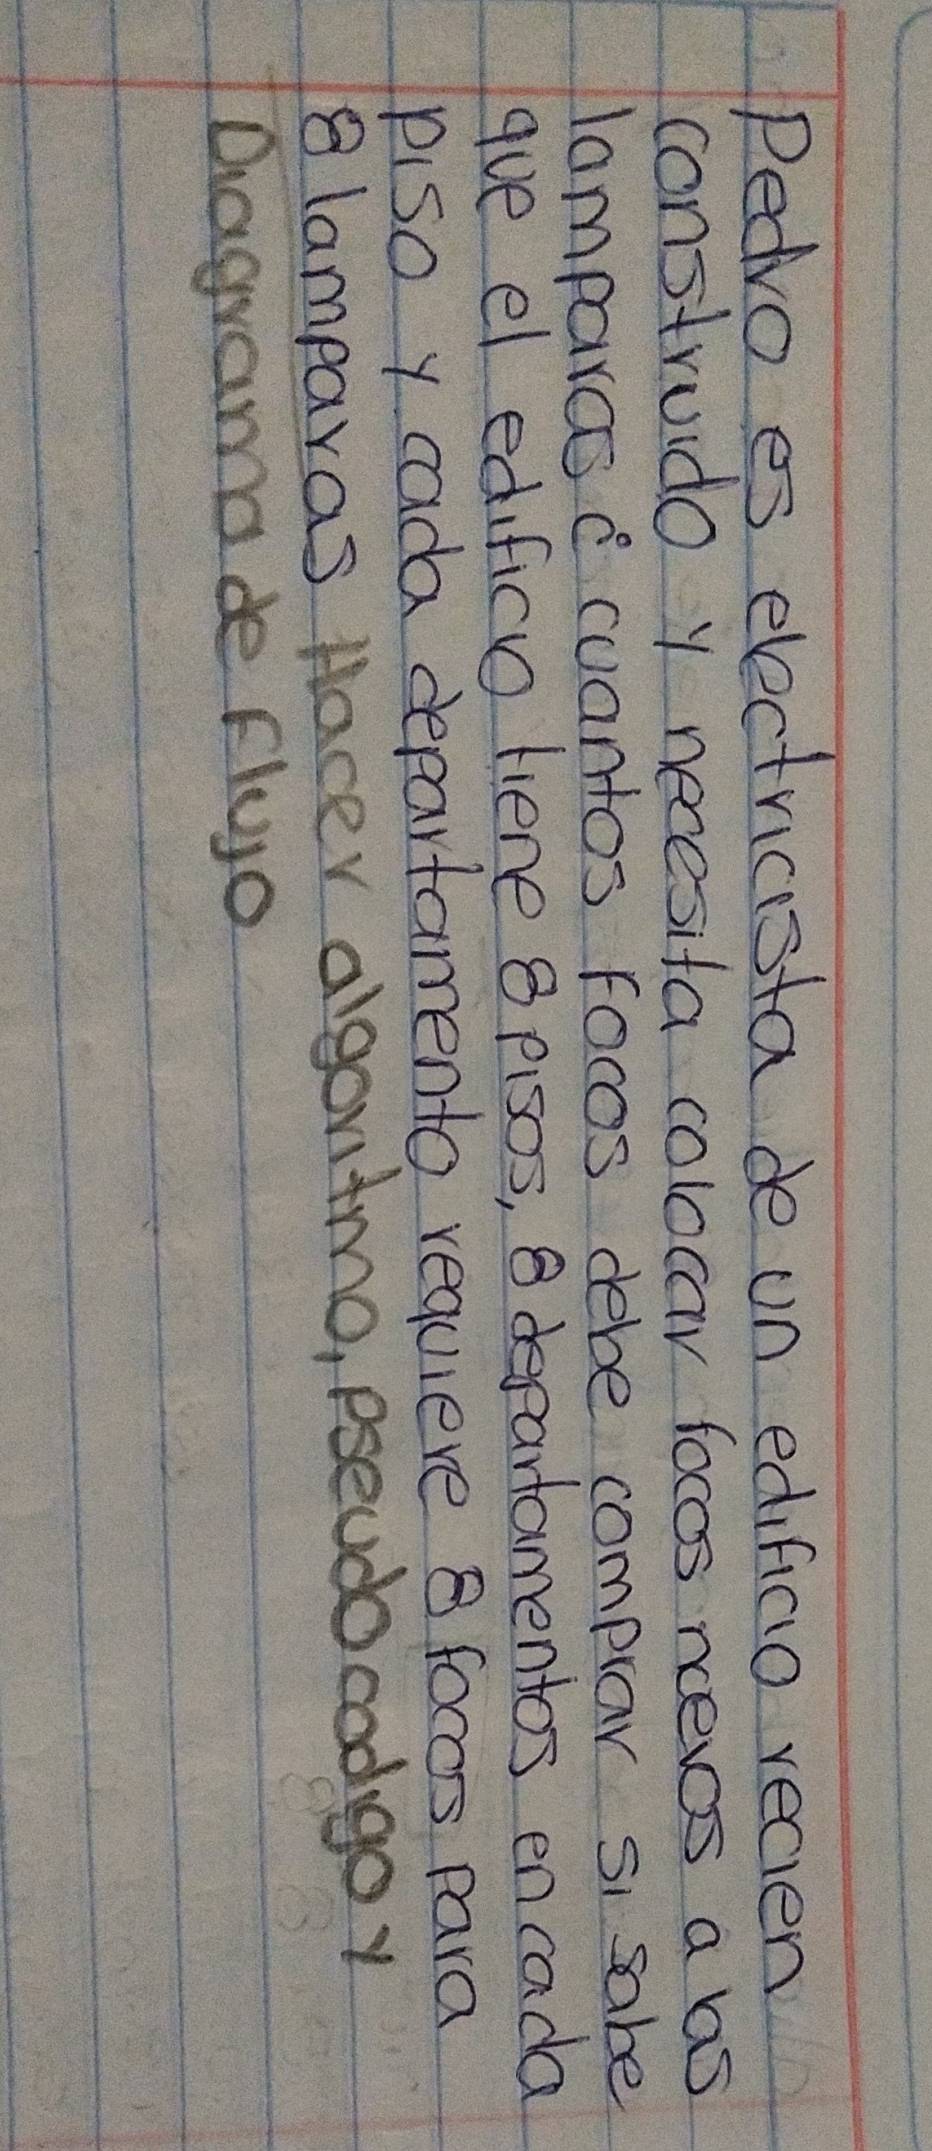 Pedro es electricista de un edificio recien
construido y necesita colocar focos nuevos a las
lamparas ¿ cuantos focos debe comprar si sabe
que el edificio tiene 8 pisos, 8 departamentos en cada
piso y cada departamento requiere 8 focos para
8 lamparas Hacer algoritmo, pseudo codigo y
Diagrama de Flujo